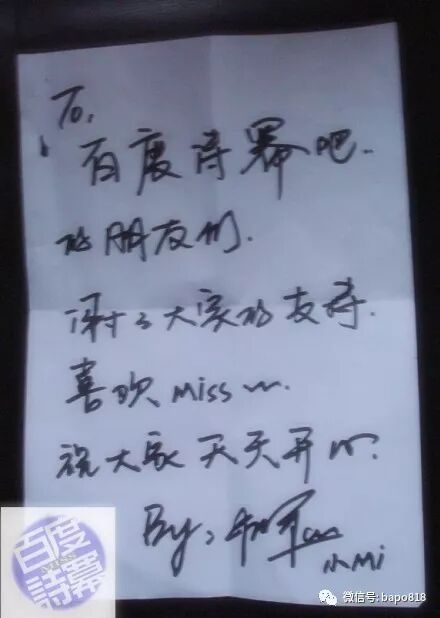 To,
百度诗幂吧.
的朋友们.
谢谢大家的支持.
喜欢 Miss ~.
祝大家天天开心.
By:
小Mi
百度
詩幂
微信号: bapo818